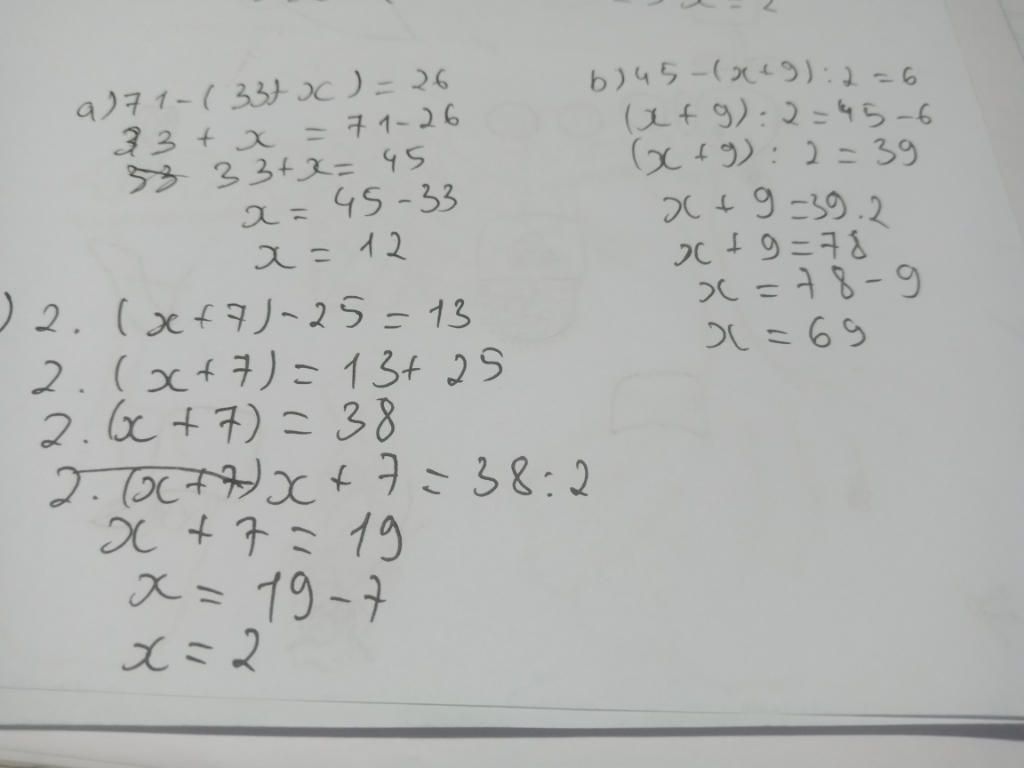 a) 71 - ( 33 + x ) = 26
33 + x = 71 - 26
33 33 + x = 45
x = 45 - 33
x = 12
b) 45 - (x + 9) : 2 = 6
(x + 9) : 2 = 45 - 6
(x + 9) : 2 = 39
x + 9 = 39 . 2
x + 9 = 78
x = 78 - 9
x = 69
) 2 . (x + 7) - 25 = 13
2 . (x + 7) = 13 + 25
2 . (x + 7) = 38
2 . (x + 7) x + 7 = 38 : 2
x + 7 = 19
x = 19 - 7
x = 2